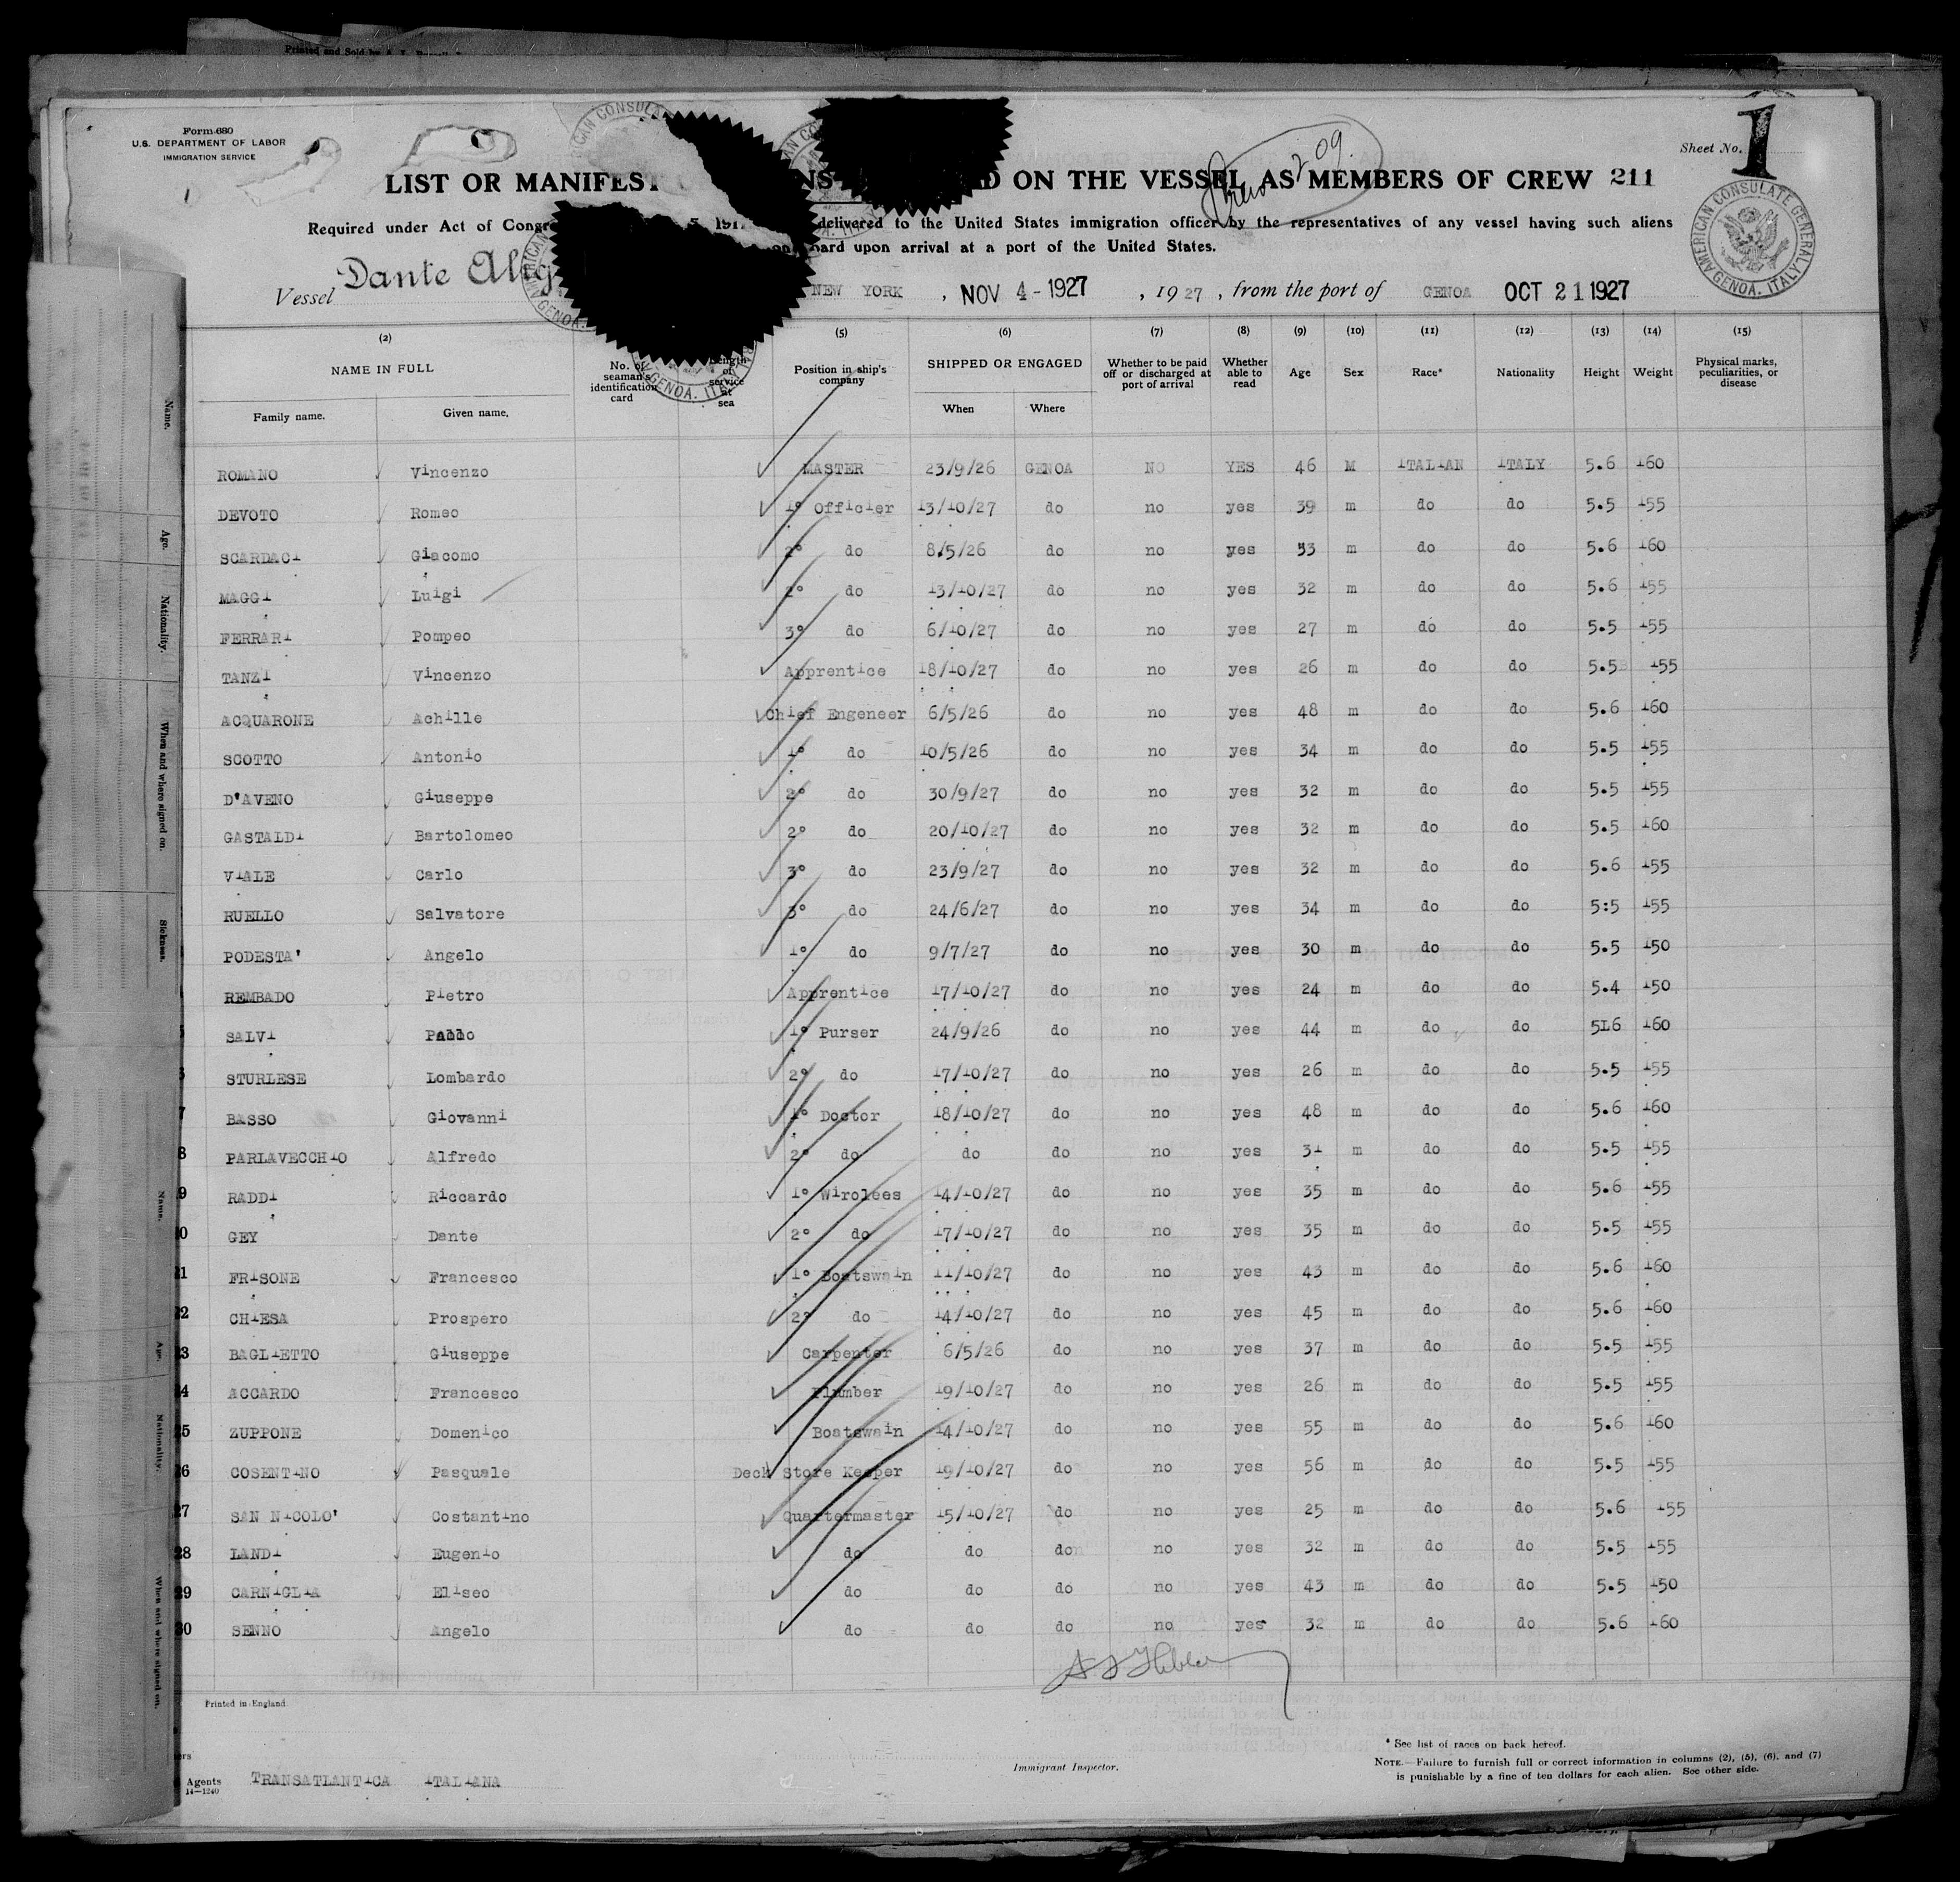 Printed and Sold by
Form 680
U.S. DEPARTMENT OF LABOR
IMMIGRATION SERVICE
Sheet No. 1
LIST OR MANIFEST ON THE VESSEL AS MEMBERS OF CREW 211
Required under Act of 191 delivered to the United States immigration officer by the representatives of any vessel having such aliens
upon arrival at a port of the United States.
AMERICAN CONSULATE GENERAL GENOA. ITALY
Vessel Dante
NEW YORK, NOV 4 - 1927, 1927, from the port of GENOA OCT 21 1927
(2) (5) (6) (7) (8) (9) (10) (11) (12) (13) (14) (15)
NAME IN FULL No. of seaman's identification card Length of service at sea Position in ship's company SHIPPED OR ENGAGED Whether to be paid off or discharged at port of arrival Whether able to read Age Sex Race* Nationality Height Weight Physical marks, peculiarities, or disease
Family name. Given name. When Where
ROMANO Vincenzo MASTER 23/9/26 GENOA NO YES 46 M ITALIAN ITALY 5.6 160
DEVOTO Romeo 1º Officier 13/10/27 do no yes 39 m do do 5.5 155
SCARDACI Giacomo 2º do 8/5/26 do no yes 33 m do do 5.6 160
MAGGI Luigi 2º do 13/10/27 do no yes 32 m do do 5.6 155
FERRARI Pompeo 3º do 6/10/27 do no yes 27 m do do 5.5 155
TANZI Vincenzo Apprentice 18/10/27 do no yes 26 m do do 5.5 155
ACQUARONE Achille Chief Engeneer 6/5/26 do no yes 48 m do do 5.6 160
SCOTTO Antonio 1º do 10/5/26 do no yes 34 m do do 5.5 155
D'AVENO Giuseppe 2º do 30/9/27 do no yes 32 m do do 5.5 155
GASTALDI Bartolomeo 2º do 20/10/27 do no yes 32 m do do 5.5 160
VIALE Carlo 3º do 23/9/27 do no yes 32 m do do 5.6 155
RUELLO Salvatore 3º do 24/6/27 do no yes 34 m do do 5:5 155
PODESTA' Angelo 1º do 9/7/27 do no yes 30 m do do 5.5 150
REMBADO Pietro Apprentice 17/10/27 do no yes 24 m do do 5.4 150
SALVI 1º Purser 24/9/26 do no yes 44 m do do 5L6 160
STURLESE Lombardo 2º do 17/10/27 do no yes 26 m do do 5.5 155
7 BASSO Giovanni 1º Doctor 18/10/27 do no yes 48 m do do 5.6 160
8 PARLAVECCHIO Alfredo 2º do do do no yes 31 m do do 5.5 155
9 RADDI Riccardo 1º Wirolees 14/10/27 do no yes 35 m do do 5.6 155
0 GEY Dante 2º do 17/10/27 do no yes 35 m do do 5.5 155
21 FRISONE Francesco 1º Boatswain 11/10/27 do no yes 43 m do do 5.6 160
22 CHIESA Prospero 2º do 14/10/27 do no yes 45 m do do 5.6 160
23 BAGLIETTO Giuseppe Carpenter 6/5/26 do no yes 37 m do do 5.5 155
24 ACCARDO Francesco Plumber 19/10/27 do no yes 26 m do do 5.5 155
25 ZUPPONE Domenico Boatswain 14/10/27 do no yes 55 m do do 5.6 160
26 COSENTINO Pasquale Deck Store Keeper 19/10/27 do no yes 56 m do do 5.5 155
27 SAN NICOLO' Costantino Quartermaster 15/10/27 do no yes 25 m do do 5.6 155
28 LANDI Eugenio do do do no yes 32 m do do 5.5 155
29 CARNIGLIA Eliseo do do do no yes 43 m do do 5.5 150
30 SENNO Angelo do do do no yes 32 m do do 5.6 160
Printed in England
Agents TRANSATLANTICA ITALIANA
14—1240
Immigrant Inspector.
* See list of races on back hereof.
NOTE.—Failure to furnish full or correct information in columns (2), (5), (6), and (7)
is punishable by a fine of ten dollars for each alien. See other side.
Name.
Age.
Nationality.
When and where signed on.
Sickness.
Name.
Age.
Nationality.
When and where signed on.